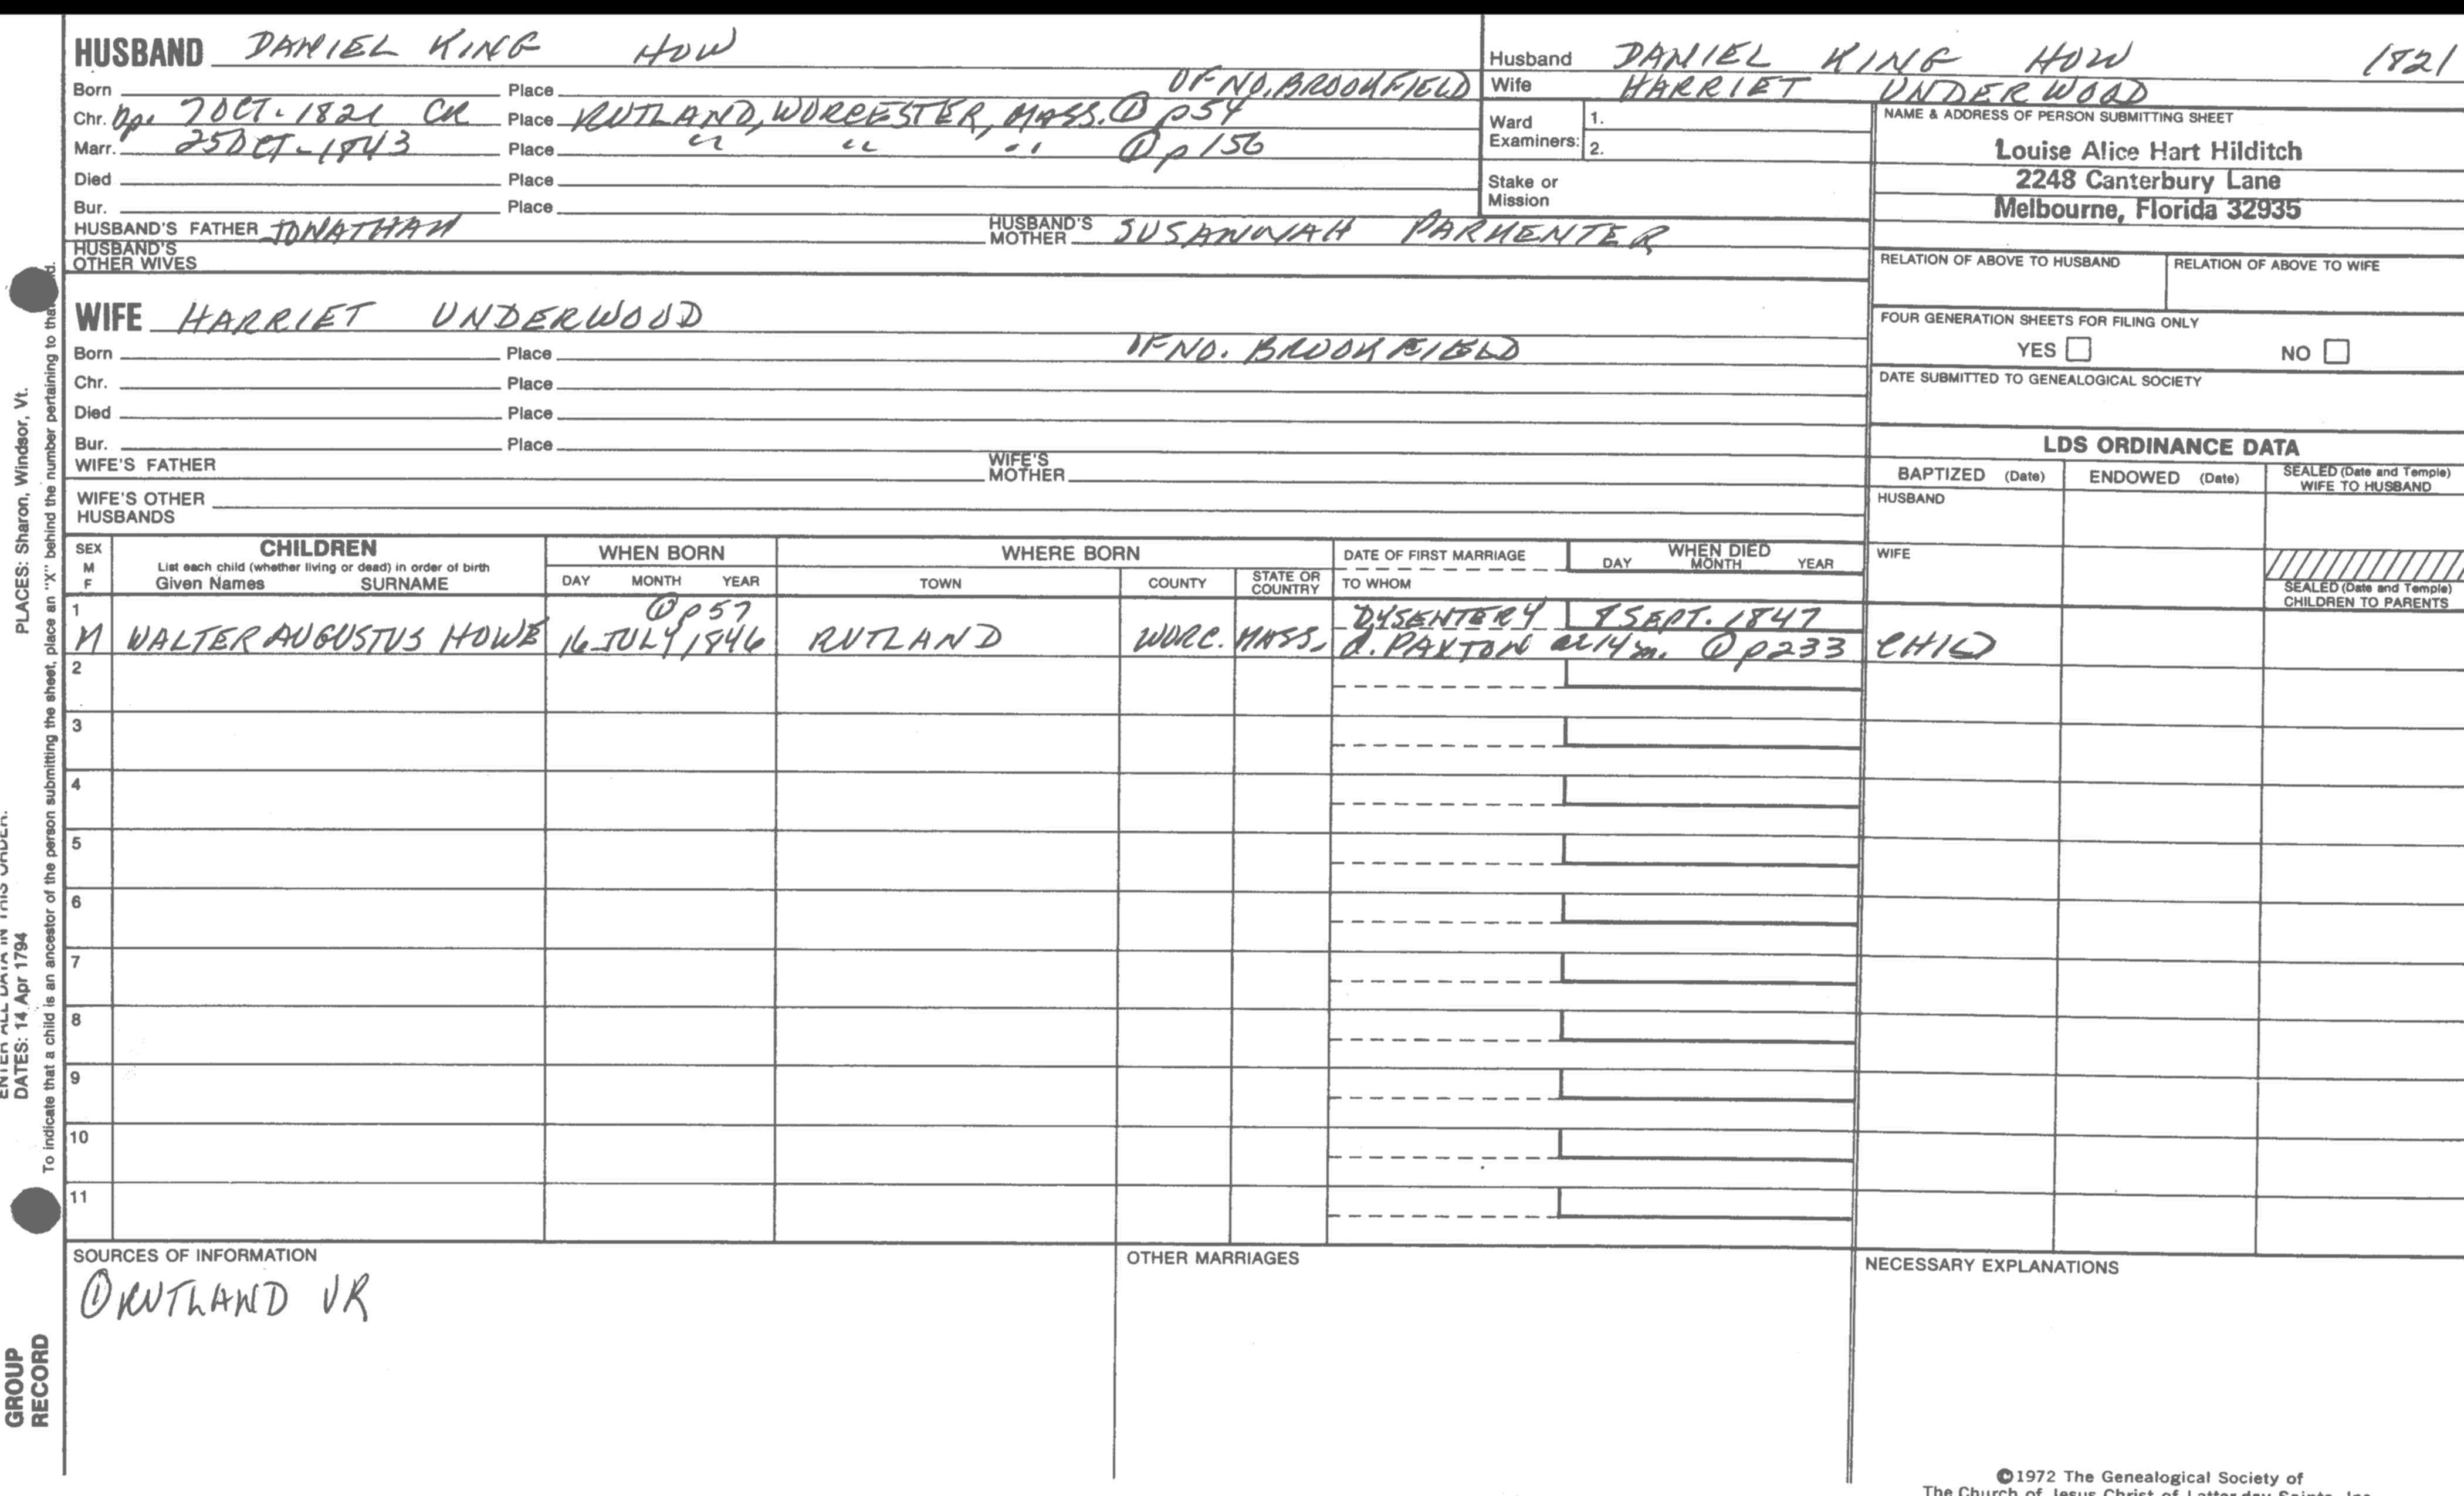 HUSBAND DANIEL KING HOW
Born Place OF NO. BROOKFIELD
Chr. Bp. 7 OCT. 1821 CR Place RUTLAND, WORCESTER, MASS. ① p54
Marr. 25 OCT - 1843 Place " " " ① p 156
Died Place
Bur. Place
HUSBAND'S FATHER JONATHAN HUSBAND'S MOTHER SUSANNAH PARMENTER
HUSBAND'S
OTHER WIVES
WIFE HARRIET UNDERWOOD
Born Place OF NO. BROOKFIELD
Chr. Place
Died Place
Bur. Place
WIFE'S FATHER WIFE'S MOTHER
WIFE'S OTHER
HUSBANDS
Husband DANIEL KING HOW 1821
Wife HARRIET UNDERWOOD
Ward
Examiners: 1.
2.
Stake or
Mission
NAME & ADDRESS OF PERSON SUBMITTING SHEET
Louise Alice Hart Hilditch
2248 Canterbury Lane
Melbourne, Florida 32935
RELATION OF ABOVE TO HUSBAND RELATION OF ABOVE TO WIFE
FOUR GENERATION SHEETS FOR FILING ONLY
YES NO
DATE SUBMITTED TO GENEALOGICAL SOCIETY
LDS ORDINANCE DATA
BAPTIZED (Date) ENDOWED (Date) SEALED (Date and Temple)
WIFE TO HUSBAND
HUSBAND
WIFE
SEALED (Date and Temple)
CHILDREN TO PARENTS
SEX
M
F
CHILDREN
List each child (whether living or dead) in order of birth
Given Names SURNAME
WHEN BORN
DAY MONTH YEAR
WHERE BORN
TOWN COUNTY STATE OR
COUNTRY
DATE OF FIRST MARRIAGE
TO WHOM
WHEN DIED
DAY MONTH YEAR
1 ① p57 DYSENTERY 8 SEPT. 1847
M WALTER AUGUSTUS HOWE 16 JULY 1846 RUTLAND WORC. MASS. d. PAXTON ae 14 m. ① p233 CHILD
2
3
4
5
6
7
8
9
10
11
SOURCES OF INFORMATION
① RUTLAND VR
OTHER MARRIAGES
NECESSARY EXPLANATIONS
©1972 The Genealogical Society of
The Church of Jesus Christ of Latter-day Saints, Inc.
PLACES: Sharon, Windsor, Vt.
ENTER ALL DATA IN THIS ORDER:
DATES: 14 Apr 1794
To indicate that a child is an ancestor of the person submitting the sheet, place an "X" behind the number pertaining to that
GROUP
RECORD